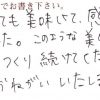 でお書き下さい。
ても美味しくて、感
た。このような美
つくり続けて
おねがいいたしま